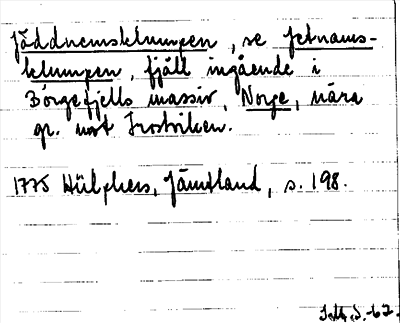 Jäddnemsklumpen, se Jetnams-
klumpen, fjäll ingående i
Börgefjells massiv, Norge, nära
gr. mot Frostviken.
1775 Hülphers, Jämtland, s. 198.